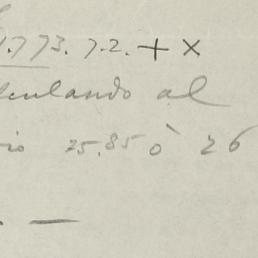 1.773. 7.2. + x
culando al
io 25.85 ò 26
. —